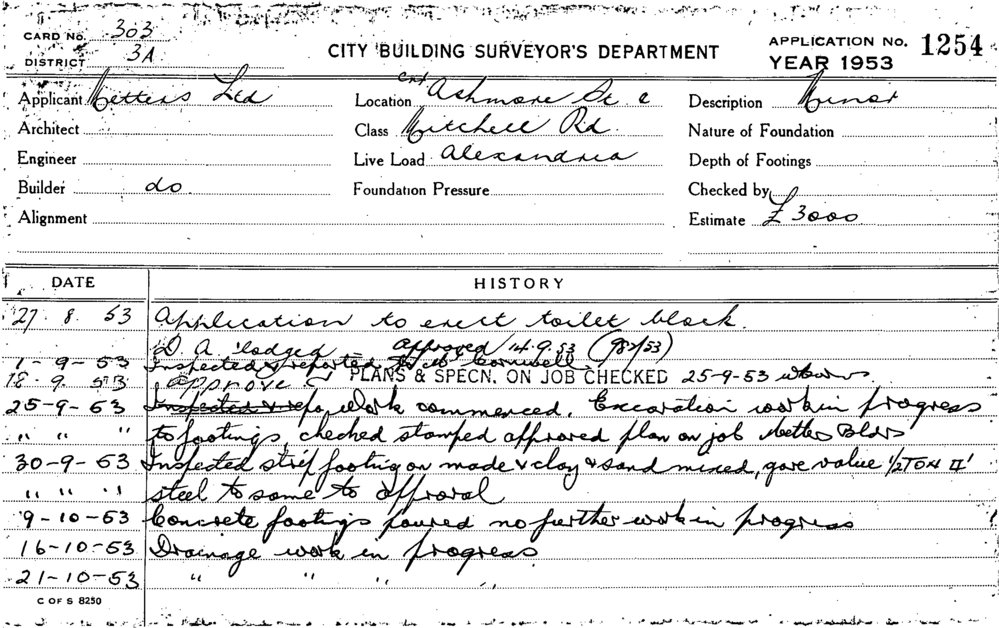 CARD No. 303
DISTRICT 3A
CITY BUILDING SURVEYOR'S DEPARTMENT
APPLICATION No. 1254
YEAR 1953
Applicant Metters Ltd
Architect
Engineer
Builder do.
Alignment
Location Cnr Ashmore St &
Class Mitchell Rd.
Live Load Alexandria
Foundation Pressure
Description Minor
Nature of Foundation
Depth of Footings
Checked by
Estimate £3000
DATE HISTORY
27. 8. 53 Application to erect toilet block.
D A lodged - approved 14.9.53 (982/53)
1-9-53 Inspected & reported to Mr Cornwell
18. 9. 53 approve PLANS & SPECN. ON JOB CHECKED 25-9-53
25-9-53 Inspected & repo Work commenced. Excavation work in progress
" " " to footings, checked stamped approved plan on job Metters Bldrs
30-9-53 Inspected strip footing on made & clay & sand mixed, gave value 1/2 TON □'
" " " steel to same to approval
9-10-53 Concrete footings poured no further work in progress
16-10-53 Drainage work in progress
21-10-53 " " " "
C OF S 8250